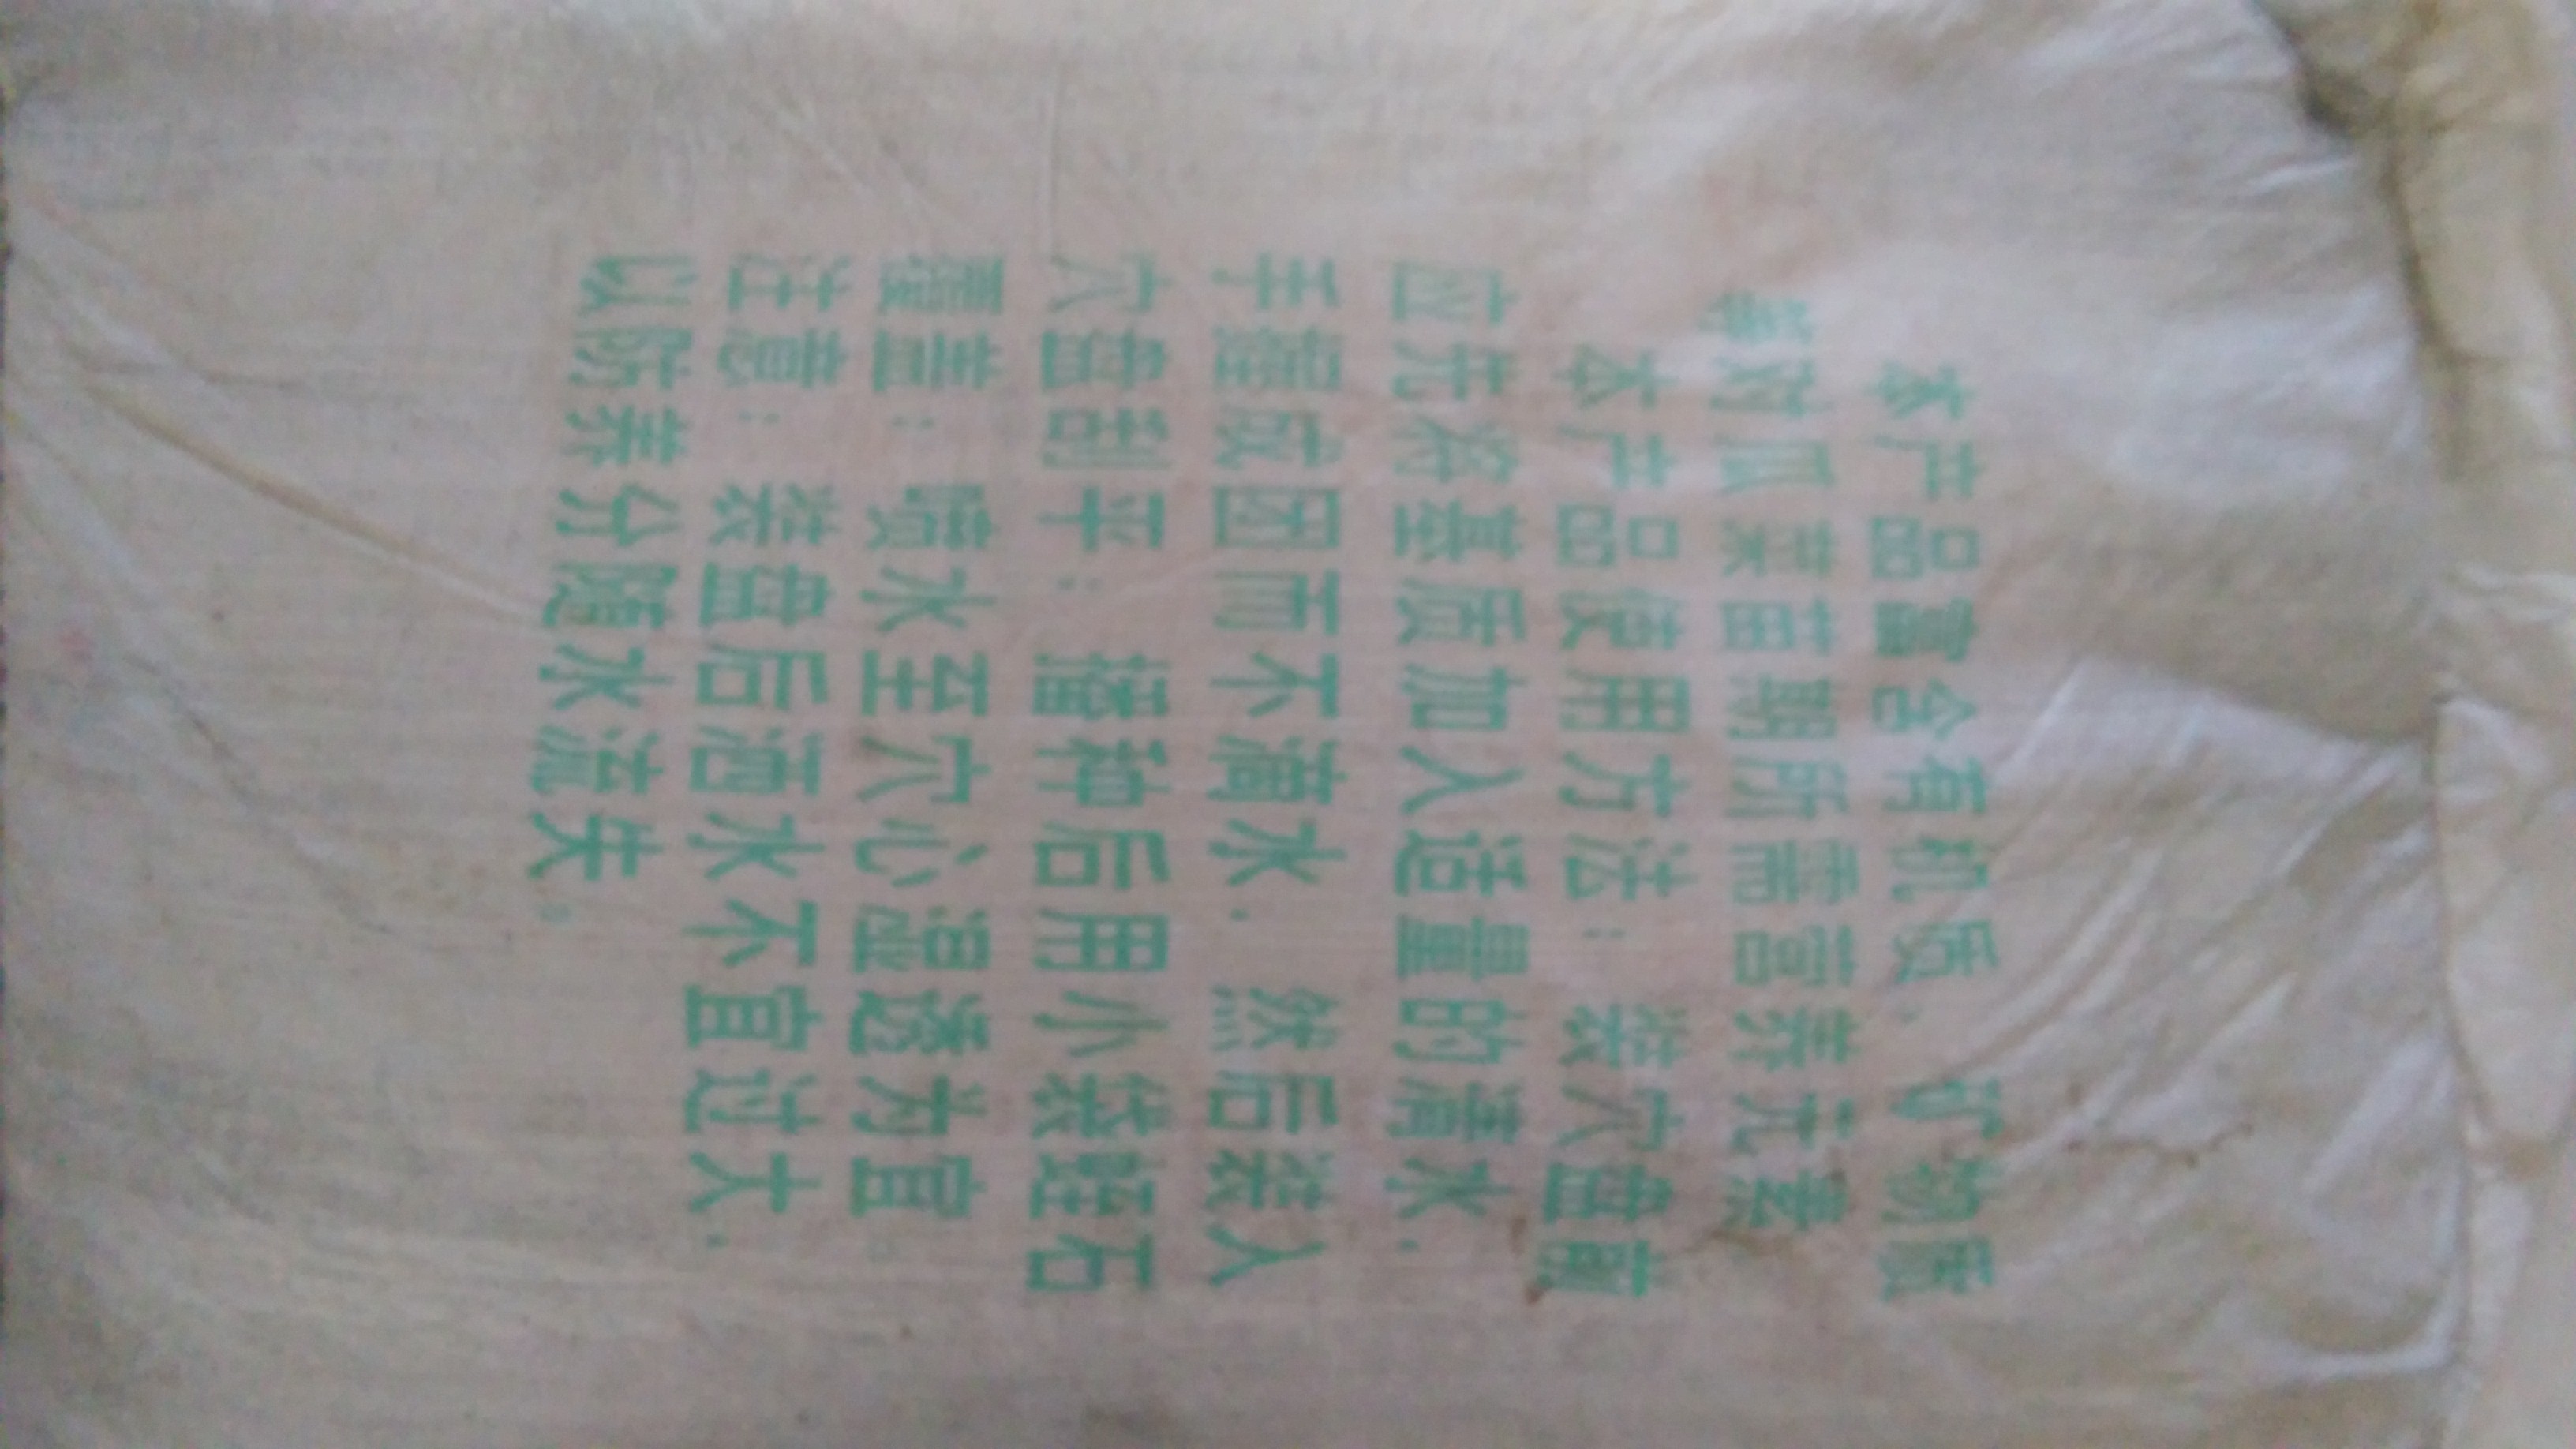 本产品富含有机质，矿物质
等对瓜菜苗期所需营养元素
本产品使用方法：装穴盘前
应先将基质加人适量的清水，
手握成团而不滴水，然后装人
穴盘刮平；播种后用小袋蛭石
覆盖；喷水至穴心湿透为宜。
注意：装盘后洒水不宜过大，
以防养分随水流失。